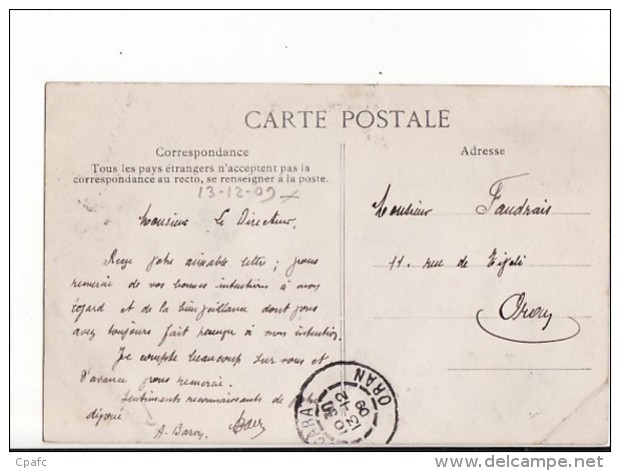 CARTE POSTALE
Correspondance
Tous les pays étrangers n'acceptent pas la
correspondance au recto, se renseigner à la poste.
13-12-09
Monsieur le Directeur,
Reçu votre aimable lettre ; vous
remercie de vos bonnes intentions à mon
égard et de la bienveillance dont vous
avez toujours fait preuve à mon intention.
Je compte beaucoup sur vous et
d'avance vous remercie.
Sentiments reconnaissants de votre
dévoué
A. Baron
Adresse
Monsieur Faudrais
11. rue de
Oran
ORAN
© Cpafc
www.delcampe.net